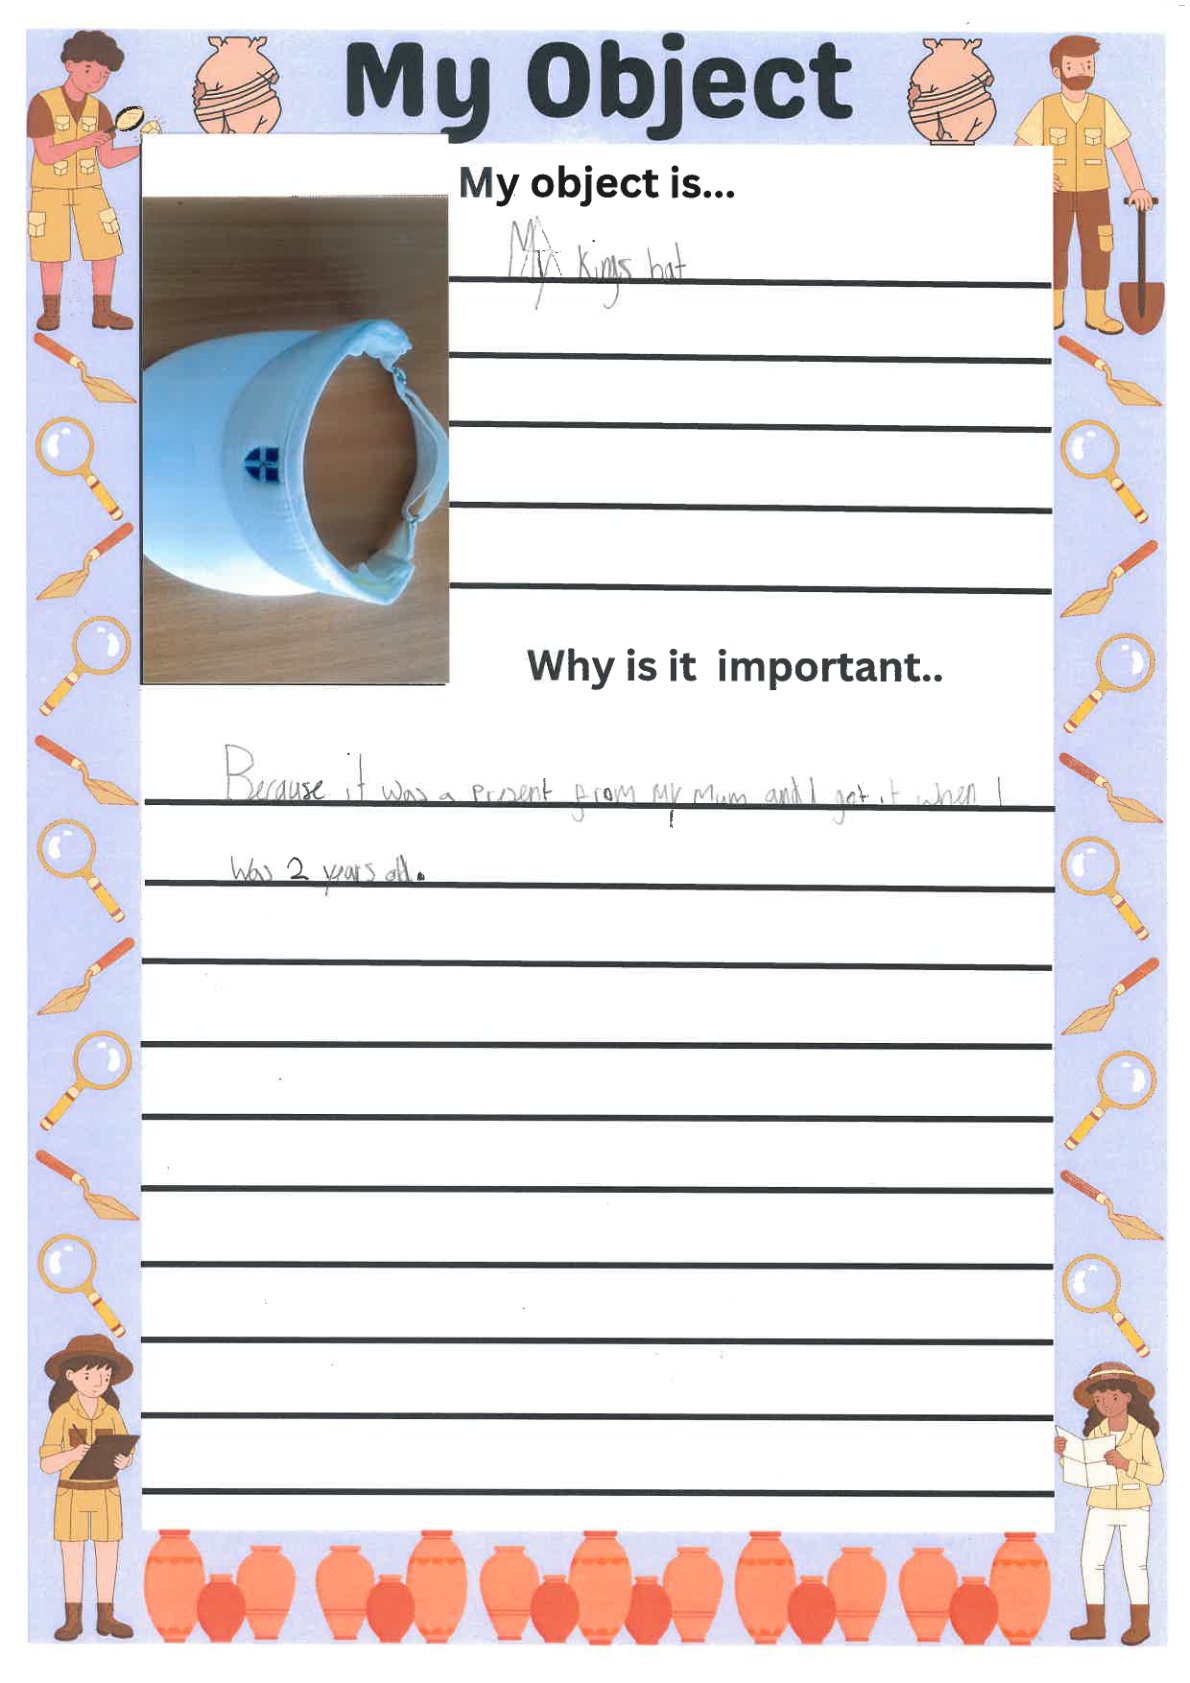 My Object
My object is...
My kings hat
Why is it important..
Because it was a present from my mum and I got it when I
was 2 years old.